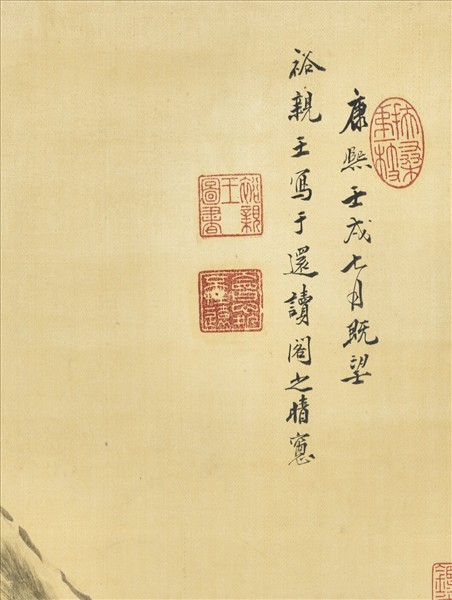 康熙壬戌七月既望
裕親王寫于還讀閣之晴窻
裕親王圖書